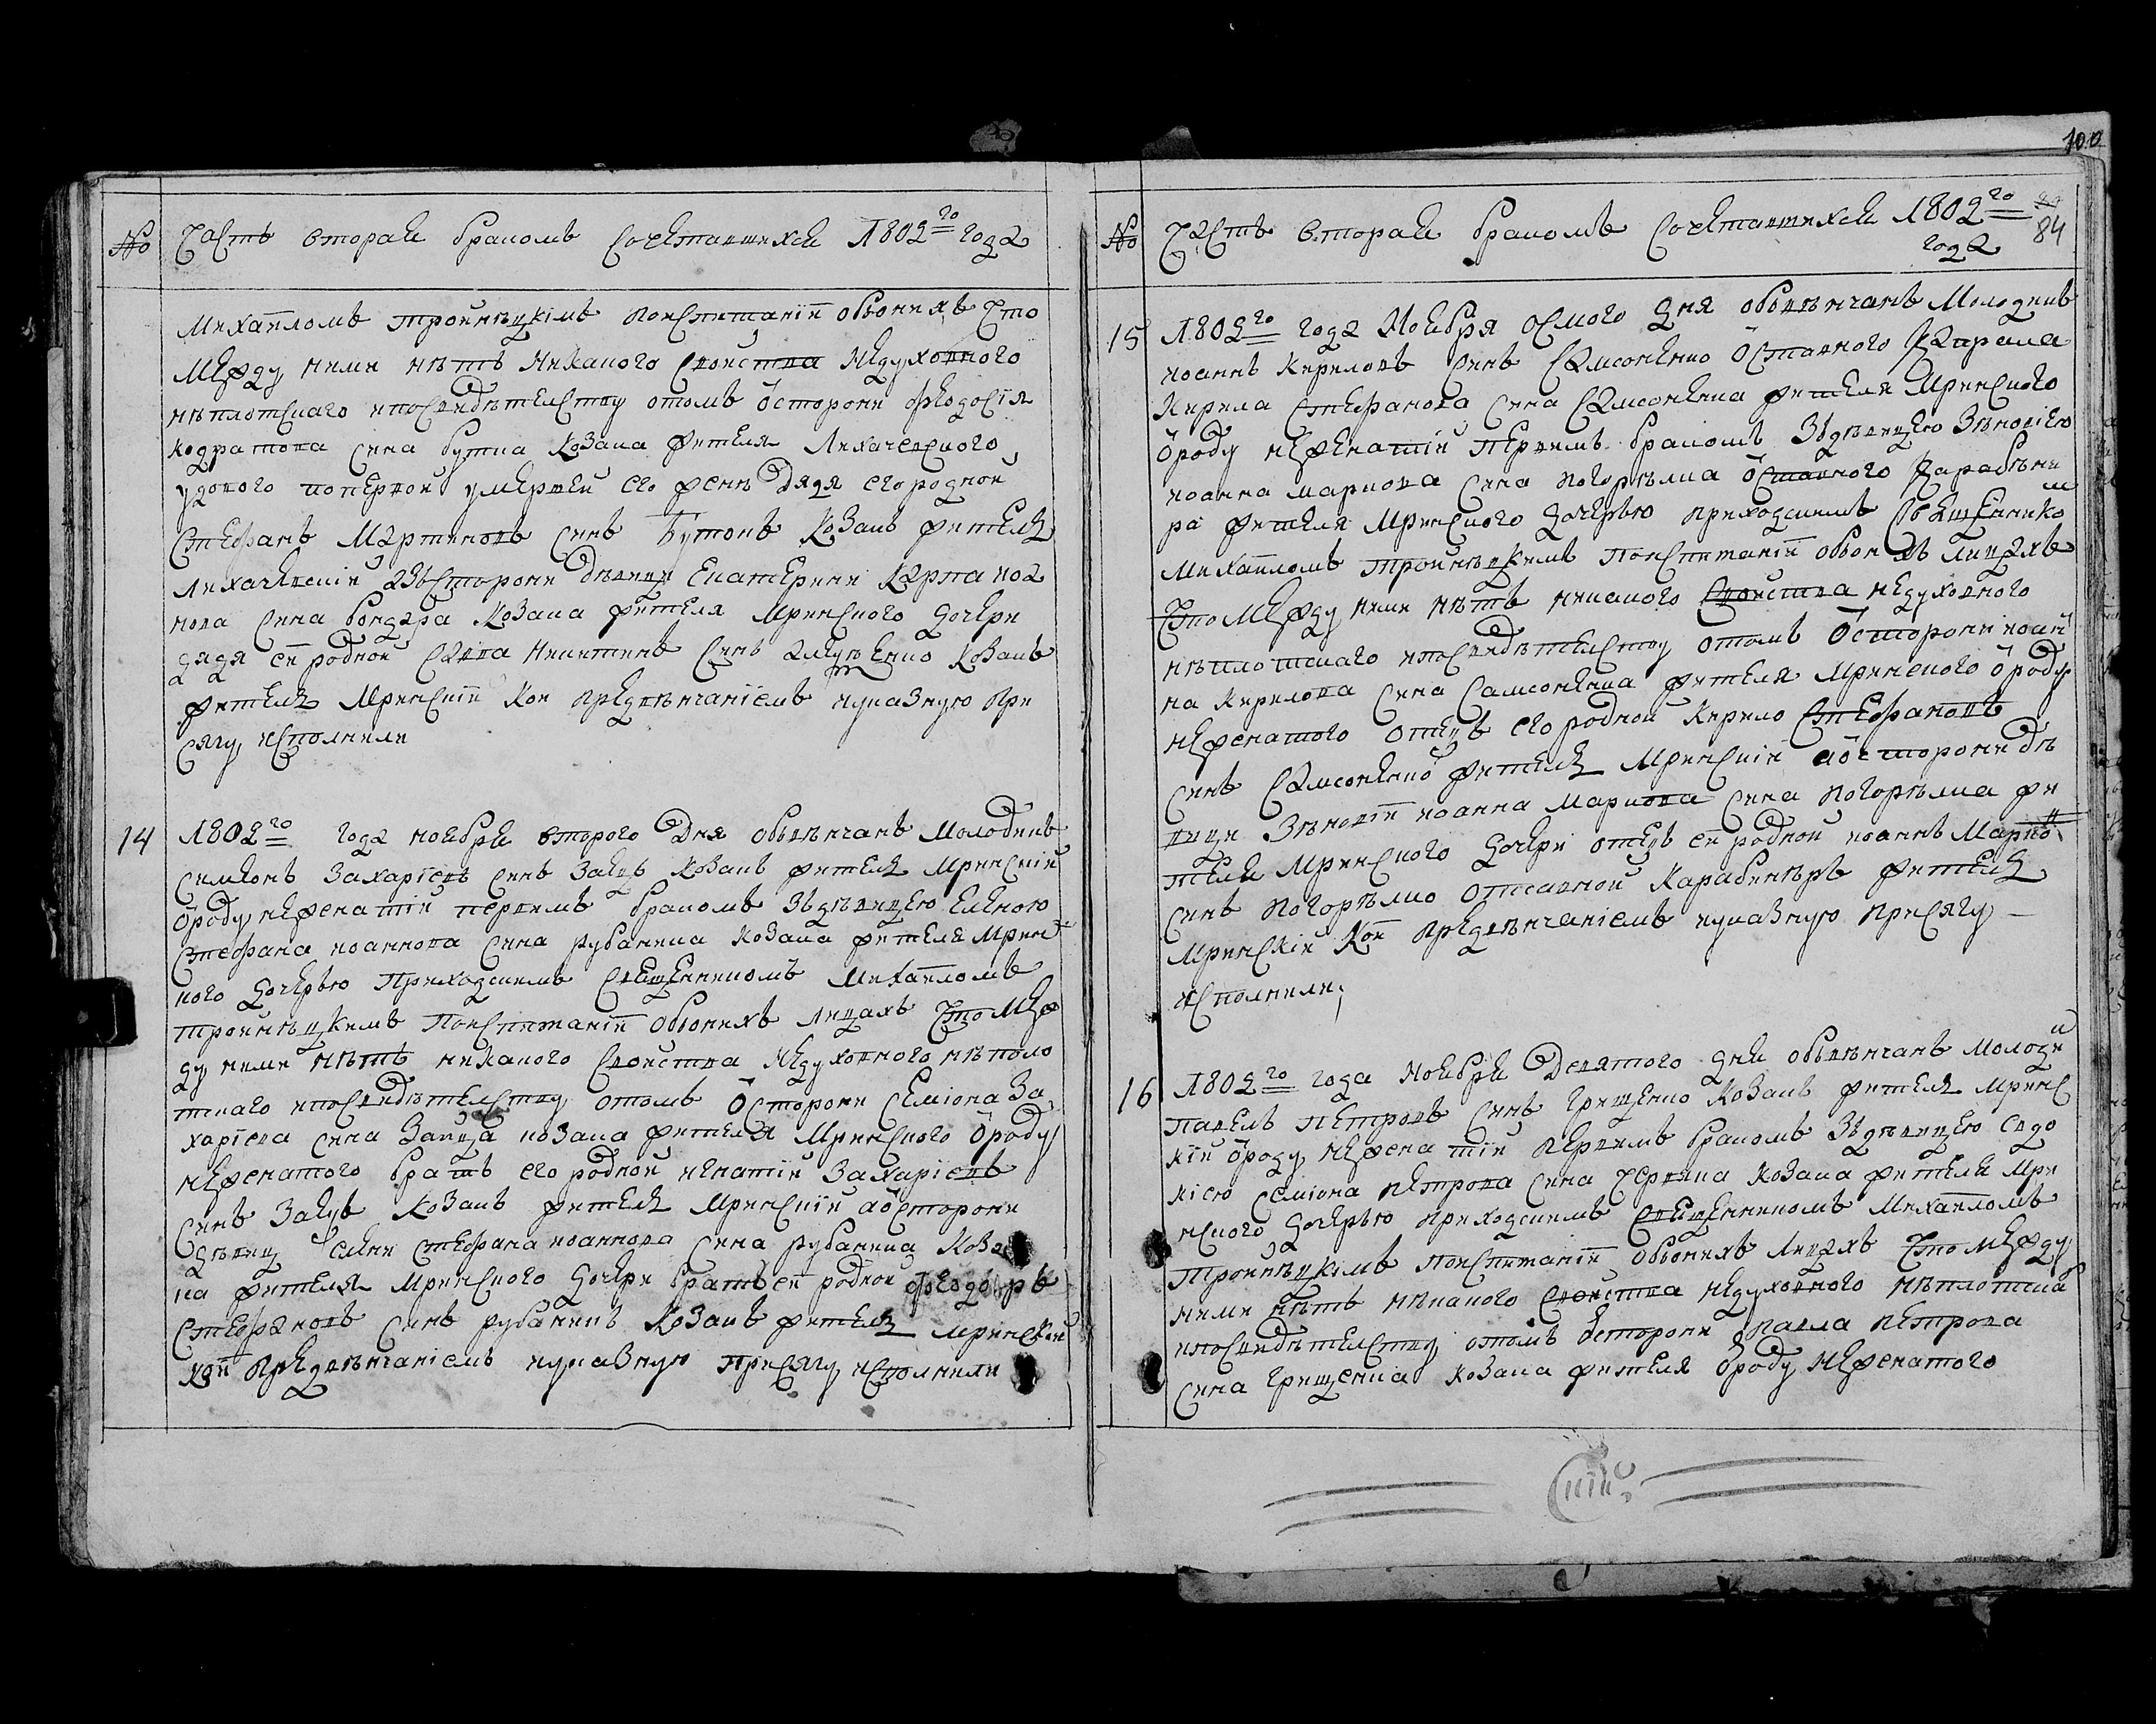 № Часть вторая бракомъ сочетавшихся 1802го года
Михаиломъ Троинѣцкімъ поиспитаніи обоихъ что
между ними нѣтъ никакого свойства недуховного
нѣплотскаго ипосвидѣтелству отомъ остороне Феодосія
кодратова сина Бутка козака жителя Лихачевского
удового попервой умершей его женѣ дядя егородной
Стефанъ Мартиновъ синъ Бутокъ козакъ житель
лихачевскій азъстороне дѣвици Екатерини Карпа ива
нова сина бондара козака жителя Мринского дочери
дядя ей родной Савва Никитинъ синъ козакъ
житель Мринскій кои предвѣнчаніемъ нуказную при
сягу исполнили
14 1802го года ноября второго дня обвѣнчанъ молодикъ
Симеонъ Захаріевъ синъ Заецъ козакъ житель Мринскій
ороду неженатій первимъ бракомъ здѣвицею Еленою
Стефана иоаннова сина рубаника козака жителя Мринс
кого дочерью приходскимъ священникомъ Михаиломъ
Троинѣцкимъ поиспитаніи обоихъ лицахъ что меж
ду ними нѣтъ никакого свойства недуховного нѣпло
тскаго ипосвидѣтелству отомъ остороне Семіона За
харіева сина Заица козака жителя Мринского ороду
неженатого братъ его родной игнатій Захаріевъ
синъ Заецъ козакъ житель Мринскій аостороне
дѣвици елени стефана иоаннова сина рубаника коза
ка жителя Мринского дочери братъ ей родной Феодоръ
Стефановъ синъ рубаникъ козакъ житель Мринскій
кои предвѣнчаніемъ нуказную присягу исполнили
100
№ Часть вторая бракомъ сочетавшихся 1802го
года
84
15 1802го года Ноября осмого дня обвѣнчанъ Молодикъ
иоаннъ Кириловъ синъ Самсоненко оставного капрала
Кирила Стефанова сина Самсоненка жителя Мринского
ороду неженатій первимъ бракомъ здѣвицею Зѣновіею
иоанна маркова сина погорѣлка оставного карабѣне
ра жителя Мринского дочерью приходскимъ священнико м
Михаиломъ Троинѣцкимъ поиспитаніи обоихъ лицахъ
что между ними нѣтъ никакого свойства недуховного
нѣплотскаго ипосвидѣтелству отомъ остороне иоан
на кирилова сина Самсоненка жителя Мринского ороду
неженатого отецъ его родной Кирило Стефановъ
синъ Самсоненко житель Мринскій аостороне дѣ
вици Зѣновіи иоанна Маркова сина погорѣлка жи
теля Мринского дочери отецъ ей родной иоаннъ Марко в
синъ погорѣлко отставной карабинѣръ житель
Мринскій кои предвѣнчаніемъ нуказную присягу
исполнили;
16 1802го года Ноября девятого дня обвѣнчанъ молоди к
павелъ Петровъ синъ грищенко козакъ житель Мринс
кій ороду неженатій первимъ бракомъ здѣвицею Евдо
кіею Семіона петрова сина червяка козака жителя Мри
нского дочерью приходскимъ священникомъ Михаиломъ
Троинѣцкімъ поиспитаніи обоихъ лицахъ что между
ними нѣтъ нѣкакого свойства недуховного нѣплотска
ипосвидѣтелству отомъ остороне павла петрова
сина грищенка козака жителя ороду неженатого